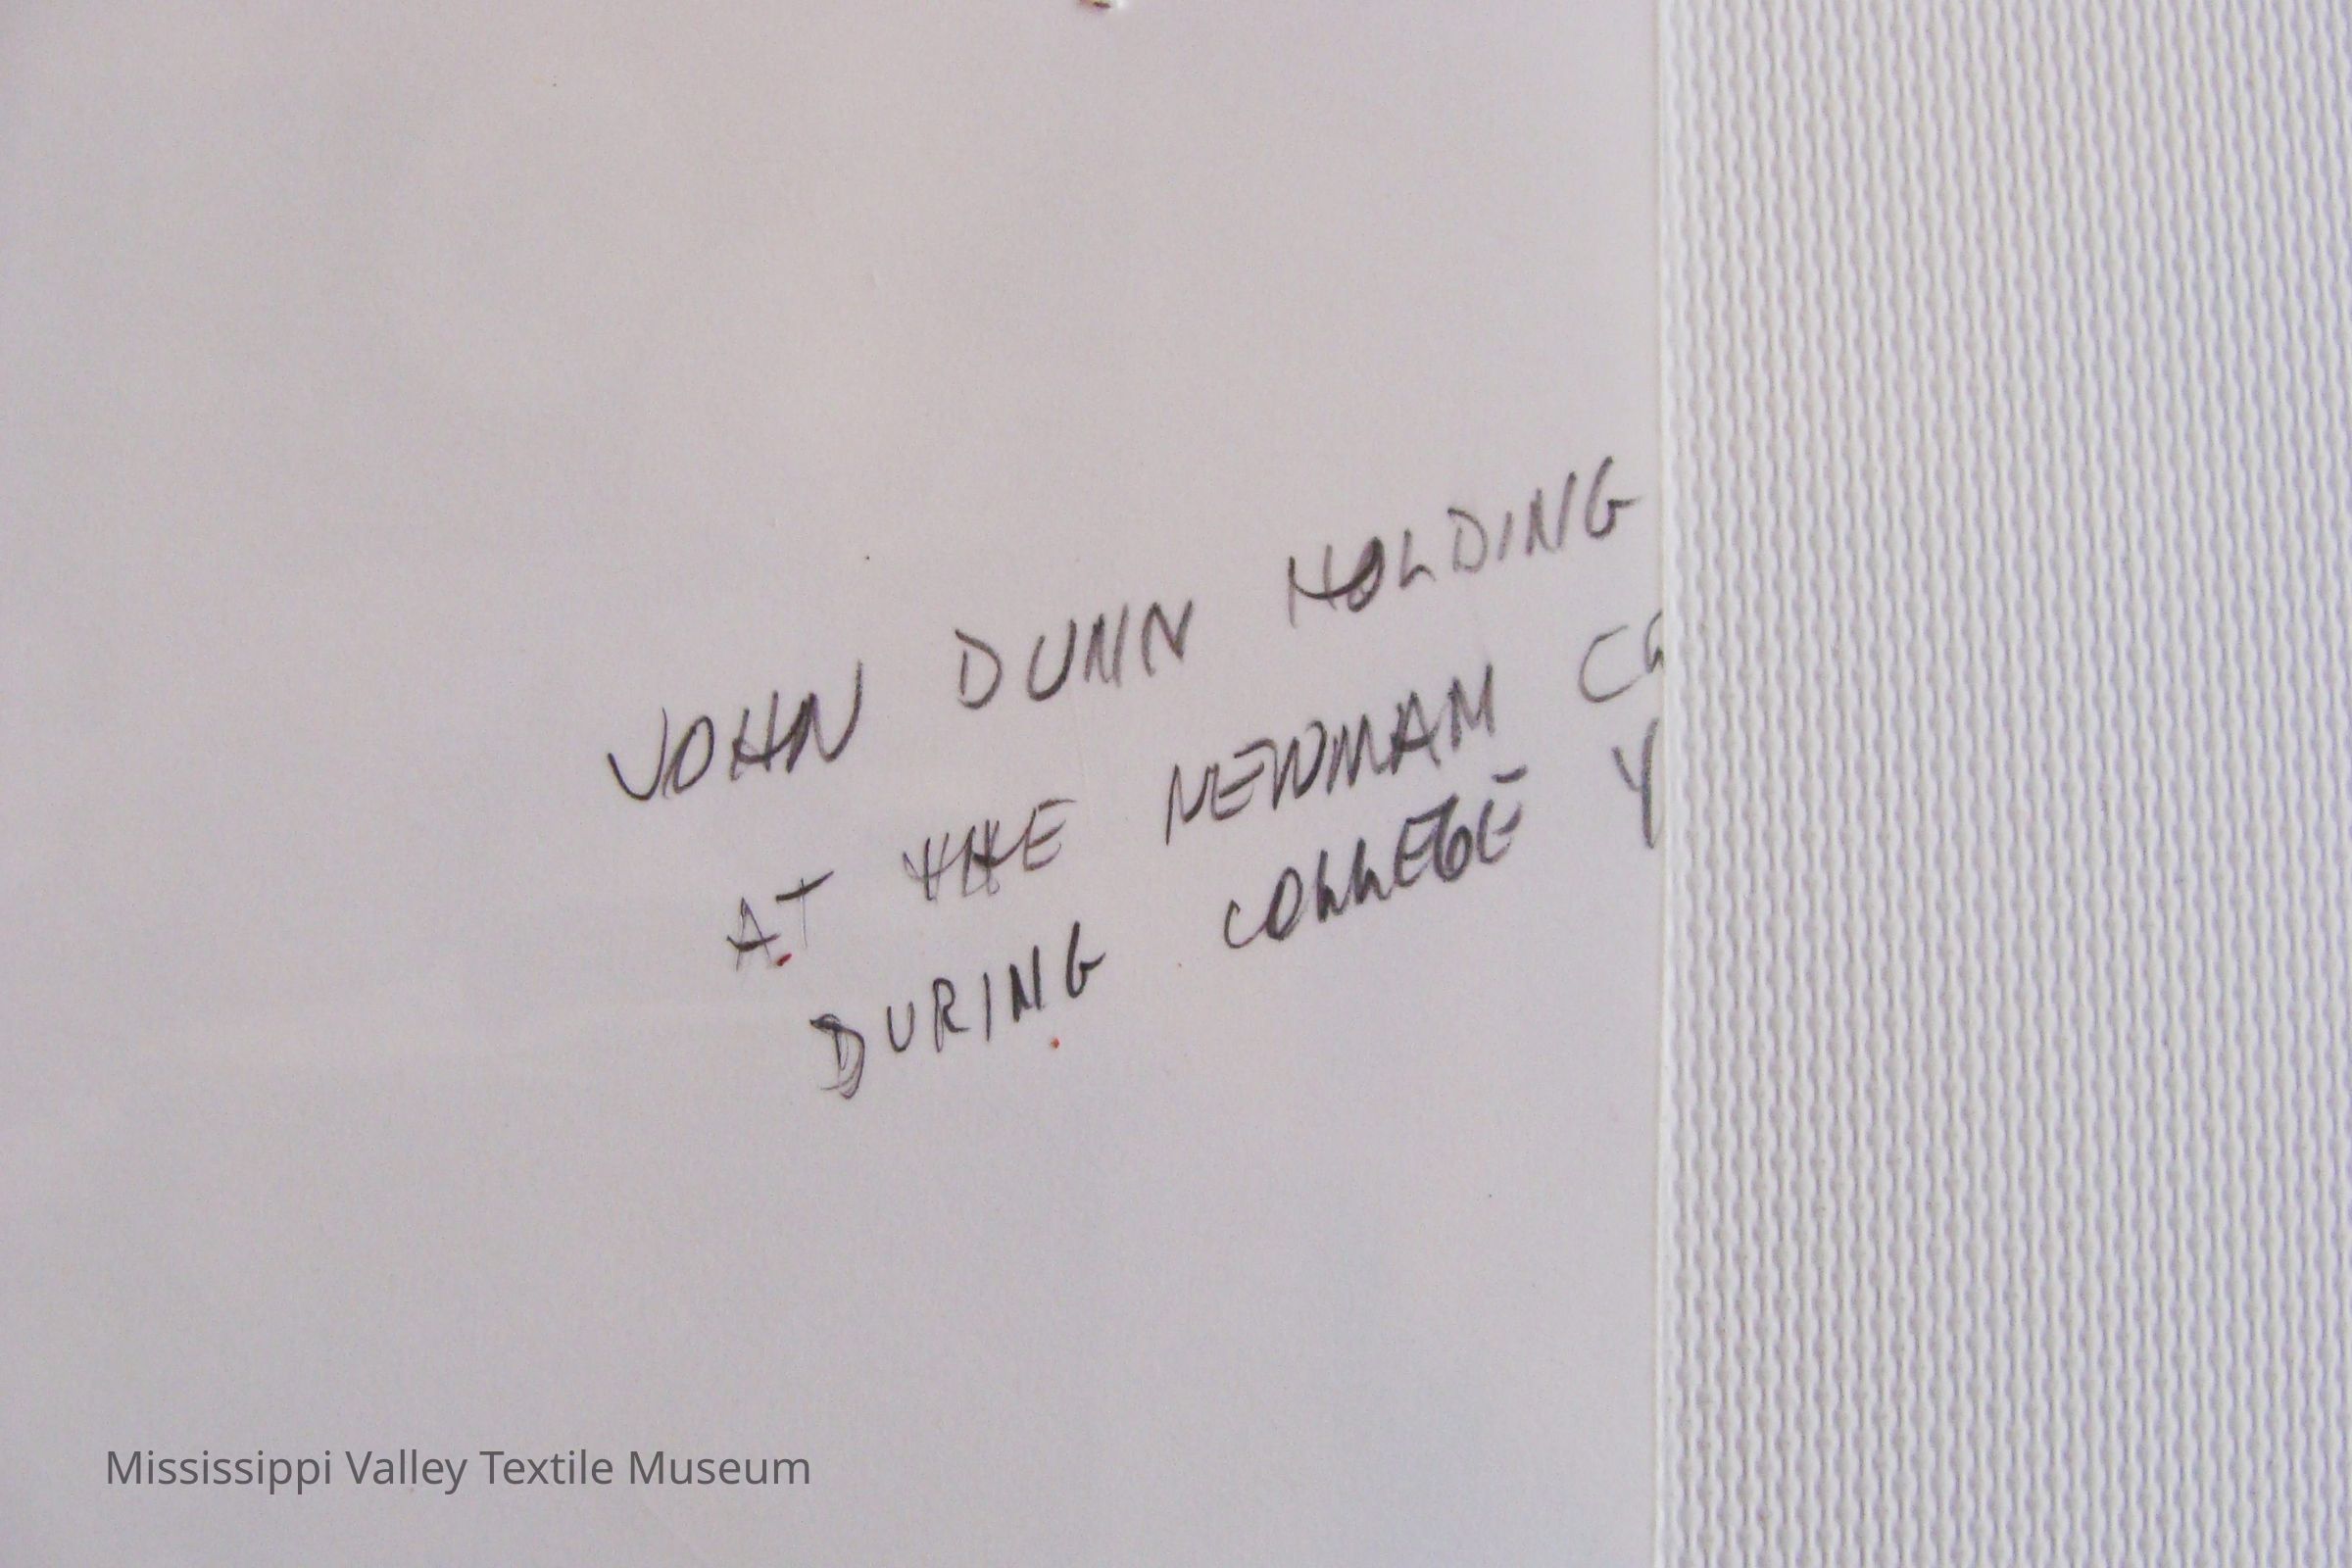 JOHN DUNN HOLDING
AT THE NEWMAN
DURING COLLEGE
Mississippi Valley Textile Museum